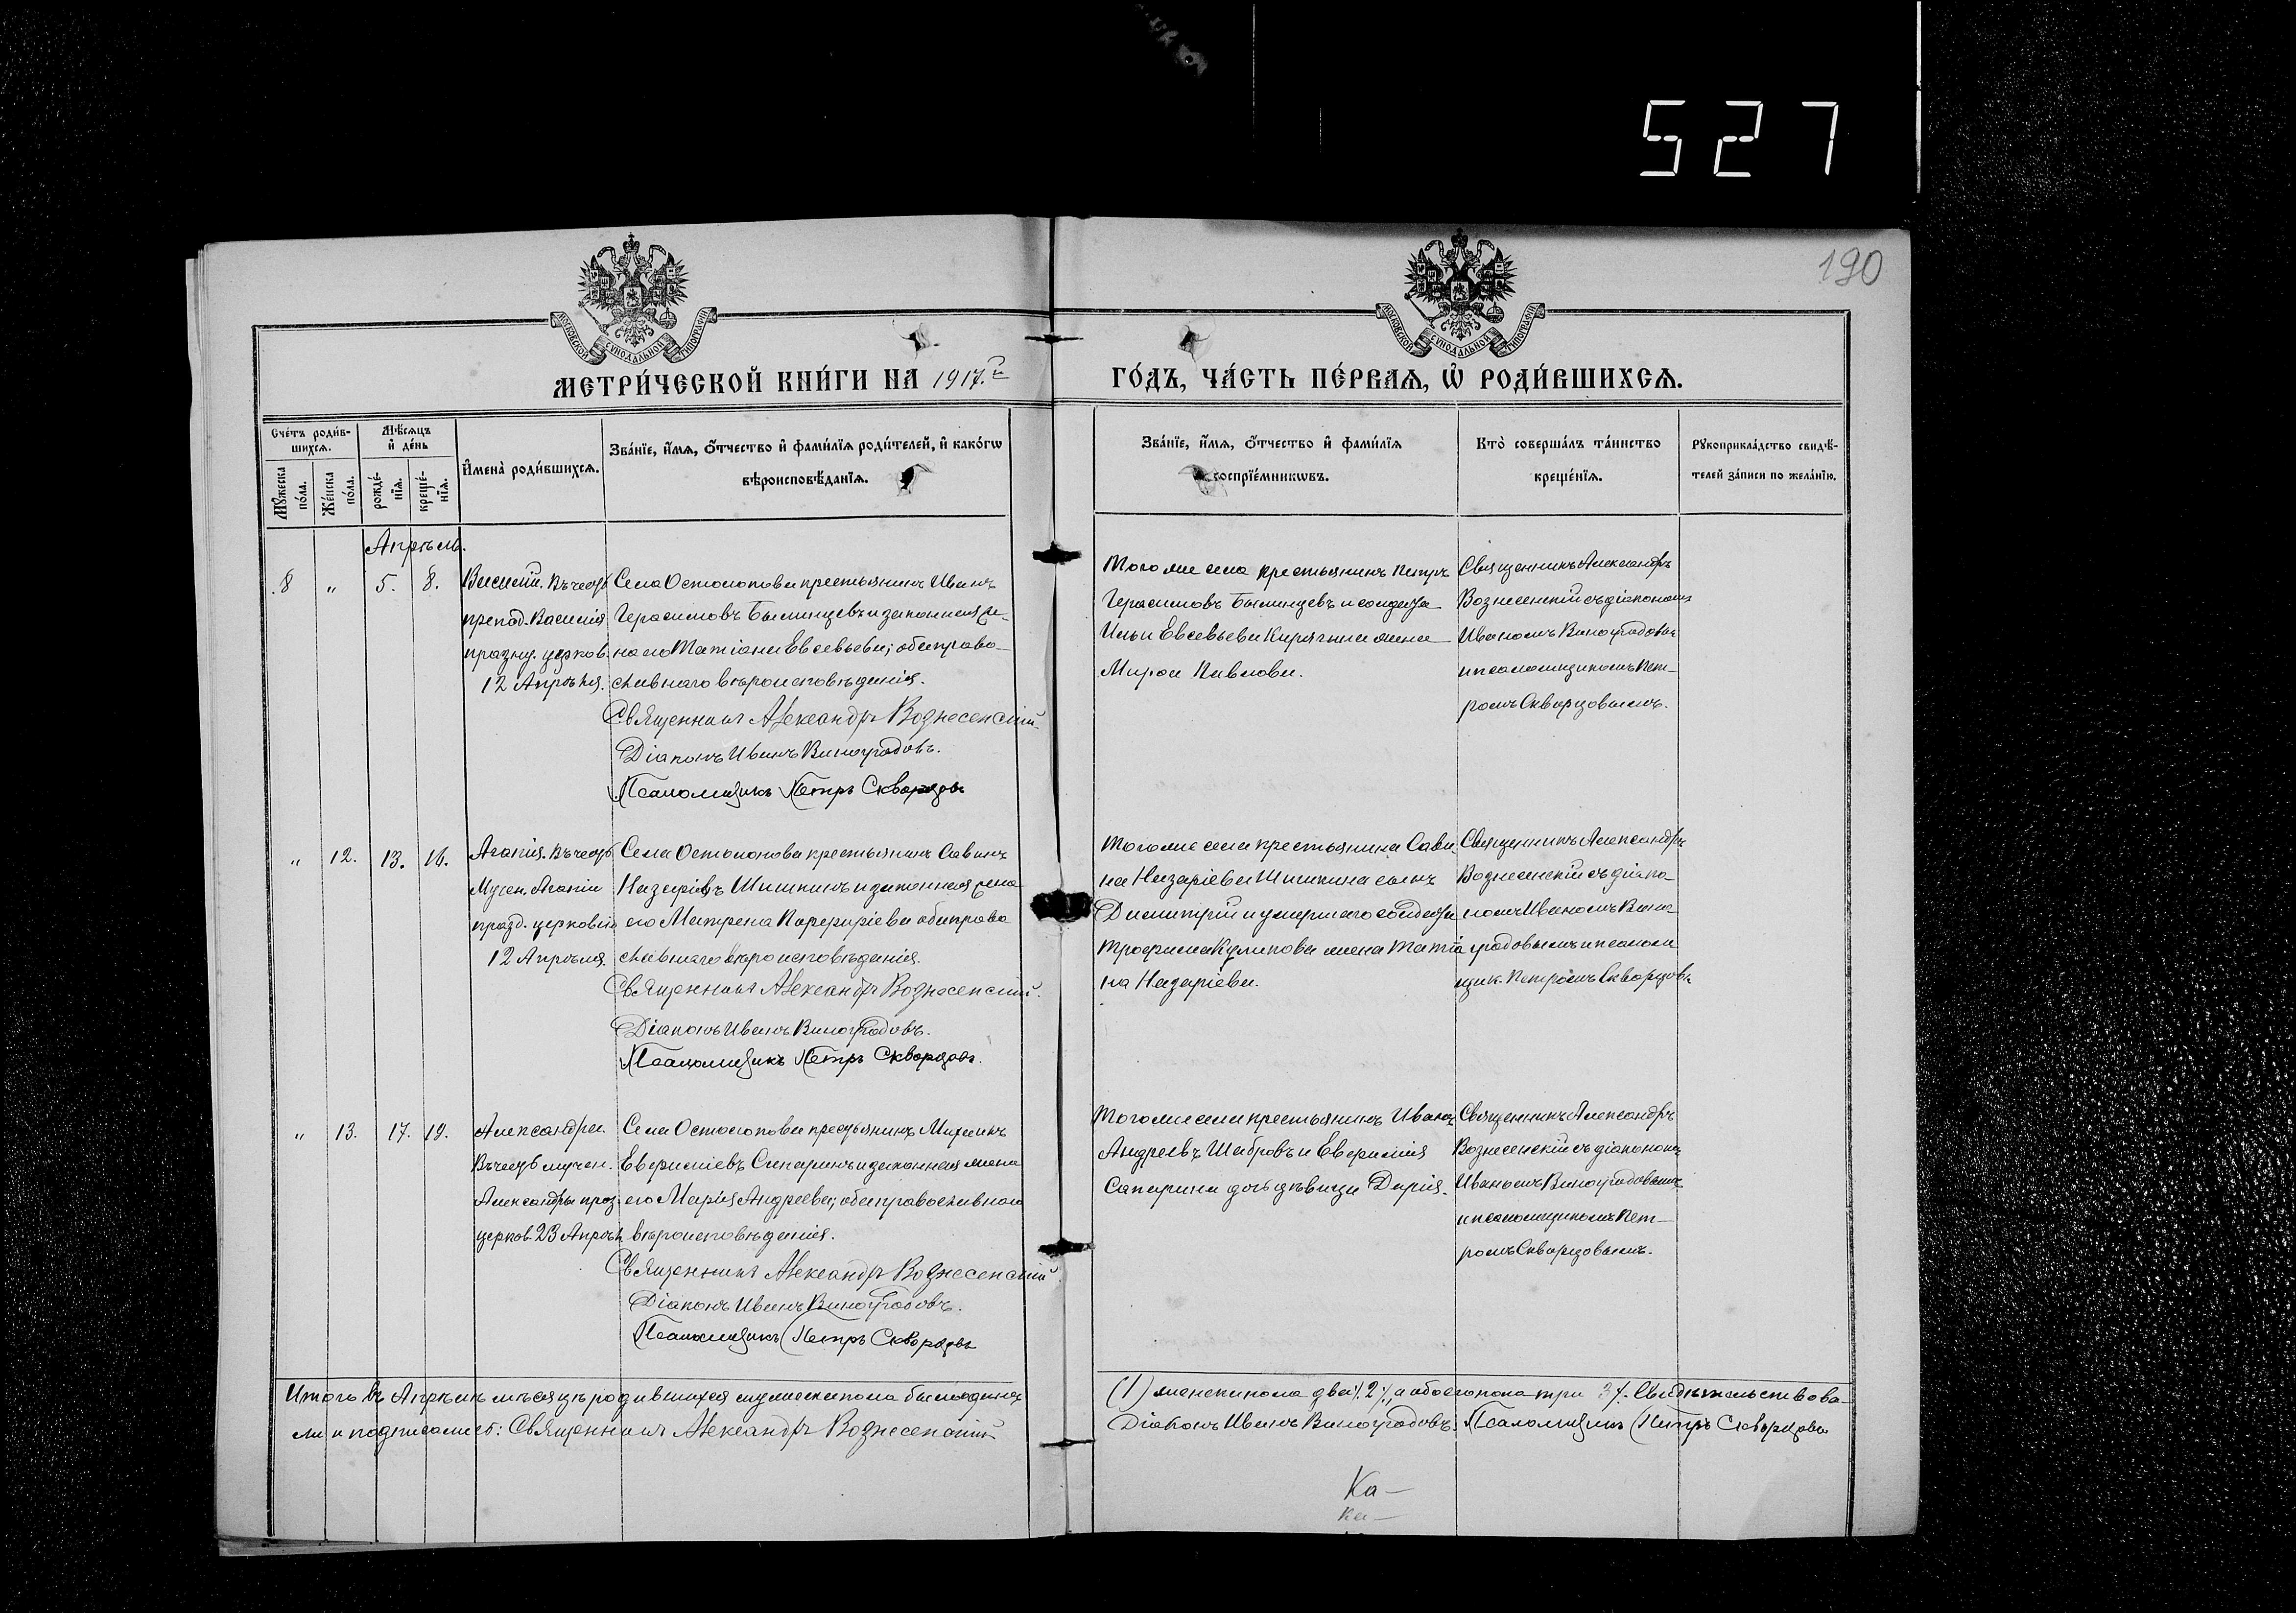 527
190
МОСКОВСКОЙ СѴНОДАЛЬНОЙ ТИПОГРАФІИ
МОСКОВСКОЙ СѴНОДАЛЬНОЙ ТИПОГРАФІИ
МЕТРИ́ЧЕСКОЙ КНИ́ГИ НА 1917.й
ГО́ДЪ, ЧА́СТЬ ПЕ́РВАѦ, Ѽ РОДИ́ВШИХСѦ.
Сче́тъ роди́в-
шихсѧ.
Мꙋжеска
по́ла.
Же́нска
по́ла.
Мѣ́сѧцъ
и҆ де́нь
рожде́-
нїѧ.
креще́-
нїѧ.
И҆мена̀ роди́вшихсѧ.
Зва́нїе, и҆́мѧ, ѻ҆́тчество и҆ фами́лїѧ роди́телей, и҆ како́гѡ
вѣроисповѣ́данїѧ.
Зва́нїе, и҆́мѧ, ѻ҆́тчество и҆ фами́лїѧ
воспрїе́мникѡвъ.
Кто̀ соверша́лъ та́инство
креще́нїѧ.
Рꙋкоприкла́дство свидѣ́-
телей за́писи по жела́нїю.
Апрѣль.
8 " 5. 8.
Василій. Въ честь
препод. Василія
празну. церков.
12 Апрѣля.
Села Остолопова крестьянинъ Иванъ
Герасимовъ Былинцевъ и законная же-
на его Татіана Евсевьева; оба право-
славнаго вѣроисповѣданія.
Священникъ Александръ Вознесенскій
Діаконъ Иванъ Виноградовъ.
Псаломщикъ Петръ Скворцовъ
Того же села крестьянинъ Петръ
Герасимовъ Былинцевъ и солдата
Ильи Евсевьева Кирягина жена
Мавра Павлова.
Священникъ Александръ
Вознесенскій съ діакономъ
Иваномъ Виноградовым
и псаломщикомъ Пет-
ромъ Скворцовымъ.
" 12. 13. 16.
Агапія. Въ честь
Мучен. Агапіи
празд. церковію
12 Апрѣля.
Села Остолопова крестьянинъ Савинъ
Назаріевъ Шишкинъ и законная жена
его Матрена Парфиріева оба право
славнаго вѣроисповѣданія.
Священникъ Александръ Вознесенскій.
Діаконъ Иванъ Виноградовъ.
Псаломщикъ Петръ Скворцовъ.
Того же села крестьянина Сави-
на Назаріева Шишкина сынъ
Димитрій и умершаго солдата
Трофима Куликова жена Татіа
на Назаріева.
Священникъ Александръ
Вознесенскій съ діако-
номъ Иваномъ Вино-
градовымъ и псалом
щик. Петромъ Скворцовы
" 13. 17. 19.
Александра.
Въ честь мучен.
Александры праз.
церков. 23 Апрѣл.
Села Остолопова крестьянинъ Михаилъ
Евфиміевъ Сапаринъ и законная жена
его Марія Андреева; оба православнаго
вѣроисповѣданія.
Священникъ Александръ Вознесенскій.
Діаконъ Иванъ Виноградовъ.
Псаломщикъ Петръ Скворцовъ
Того же села крестьянинъ Иванъ
Андреевъ Шабровъ и Евфимія
Сапарина дочь дѣвица Дарія.
Священникъ Александръ
Вознесенскій съ діакономъ
Иваномъ Виноградовымъ
и псаломщикомъ Пет-
ромъ Скворцовымъ.
Итого въ Апрѣлѣ мѣсяцѣ родившихся мужеска пола былъ одинъ
(1) женска пола два /2/, а обоего пола три 3/. Свидѣтельствова-
ли и подписались: Священникъ Александръ Вознесенскій
Діаконъ Иванъ Виноградовъ. Псаломщикъ Петръ Скворцовъ
Ка-
Ка-